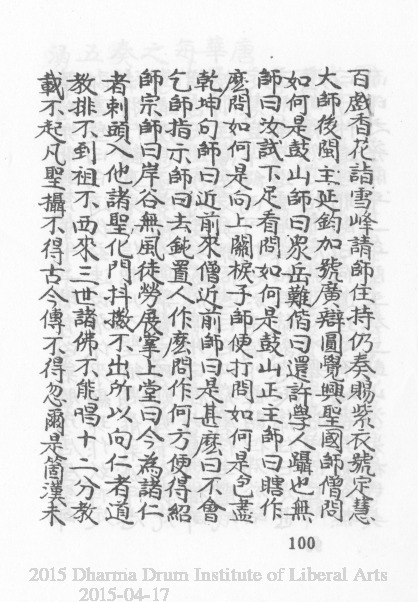 百戲香花詣雪峰請師住持仍奏賜紫衣號定慧
大師後閩主延鈞加號廣辯圓覺興聖國師僧問
如何是鼓山師曰眾岳難偕曰還許學人躡也無
師曰汝試下足看問如何是鼓山正主師曰瞎作
麼問如何是向上關棙子師便打問如何是包盡
乾坤句師曰近前來僧近前師曰是甚麼曰不會
乞師指示師曰去鈍置人作麼問作何方便得紹
師宗師曰岸谷無風徒勞展掌上堂曰今為諸仁
者刺頭入他諸聖化門抖擻不出所以向仁者道
教排不到祖不西來三世諸佛不能唱十二分教
載不起凡聖攝不得古今傳不得忽爾是箇漢未
100
2015 Dharma Drum Institute of Liberal Arts
2015-04-17